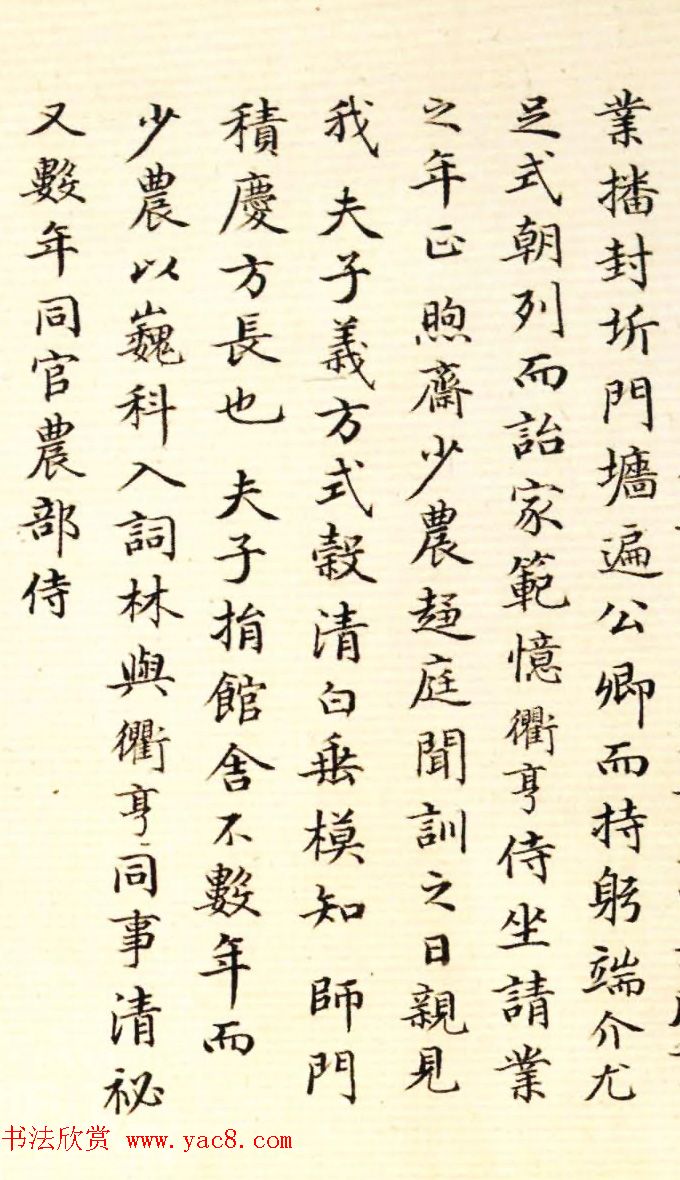 業播封圻門墻遍公卿而持躬端介尤
足式朝列而詒家範憶衢亨侍坐請業
之年正 煦齋少農趨庭聞訓之日親見
我 夫子義方式穀清白垂模知 師門
積慶方長也 夫子捐館舍不數年而
少農以巍科入詞林與衢亨同事清祕
又數年同官農部侍
书法欣赏 www.yac8.com